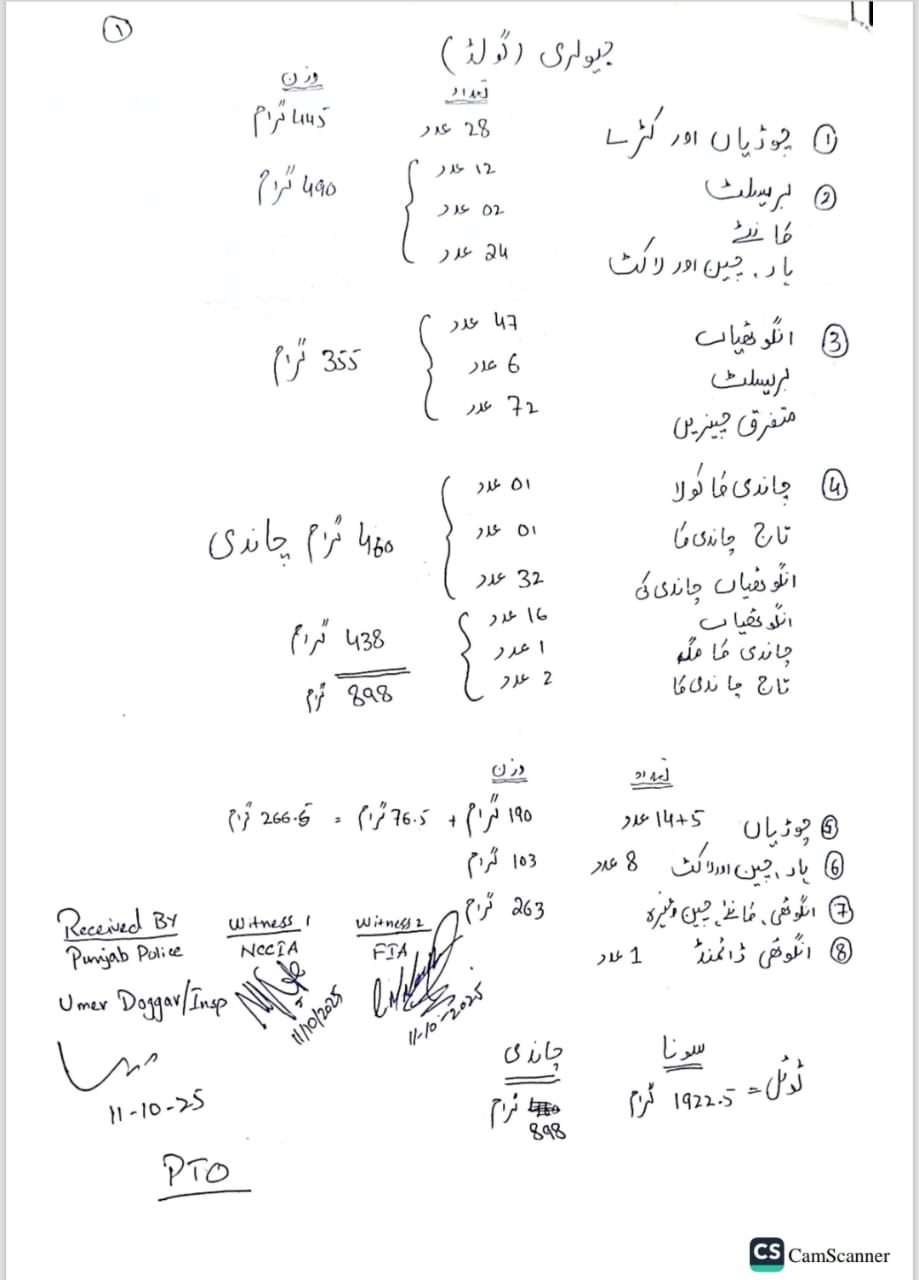 ①
جیولری (گولڈ)
تعداد وزن
① چوڑیاں اور کڑے 28 عدد 445 گرام
② بریسلٹ 12 عدد 490 گرام
کانٹے 02 عدد
ہار، چین اور لاکٹ 24 عدد
③ انگوٹھیاں 47 عدد 355 گرام
بریسلٹ 6 عدد
متفرق چیزیں 72 عدد
④ چاندی کا 01 عدد
تاج چاندی کا 01 عدد 460 گرام چاندی
انگوٹھیاں چاندی کی 32 عدد
انگوٹھیاں 16 عدد 438 گرام
چاندی کا 1 عدد
تاج چاندی کا 2 عدد 898 گرام
تعداد وزن
⑤ چوڑیاں 14+5 عدد 190 گرام + 76.5 گرام = 266.5 گرام
⑥ ہار، چین اور لاکٹ 8 عدد 103 گرام
⑦ انگوٹھی، کانٹے، چین وغیرہ 263 گرام
⑧ انگوٹھی ڈائمنڈ 1 عدد
Received By Witness 1 Witness 2
Punjab Police NCCIA FIA
Umer Doggar/Insp
11/10/2025 11-10-2025
11-10-25
سونا چاندی
ٹوٹل = 1922.5 گرام 898 گرام
PTO
CS CamScanner